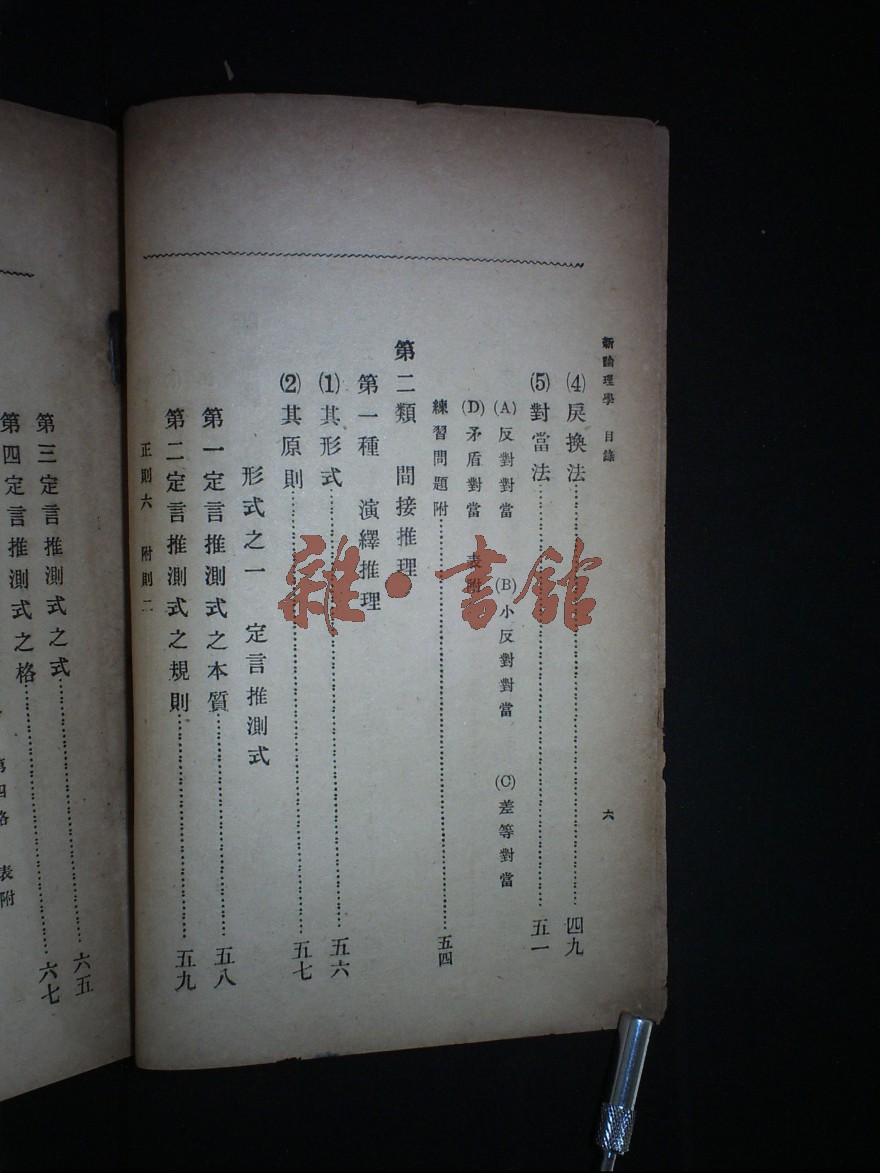 新論理學 目錄 六
⑷戾換法……四九
⑸對當法……五一
(A)反對對當 (B)小反對對當 (C)差等對當
(D)矛盾對當 表附
練習問題附……五四
第二類 間接推理
第一種 演繹推理
⑴其形式……五六
⑵其原則……五七
形式之一 定言推測式
第一定言推測式之本質……五八
第二定言推測式之規則……五九
正則六 附則二
第三定言推測式之式……六五
第四定言推測式之格……六七
第四格 表附
雜·書館